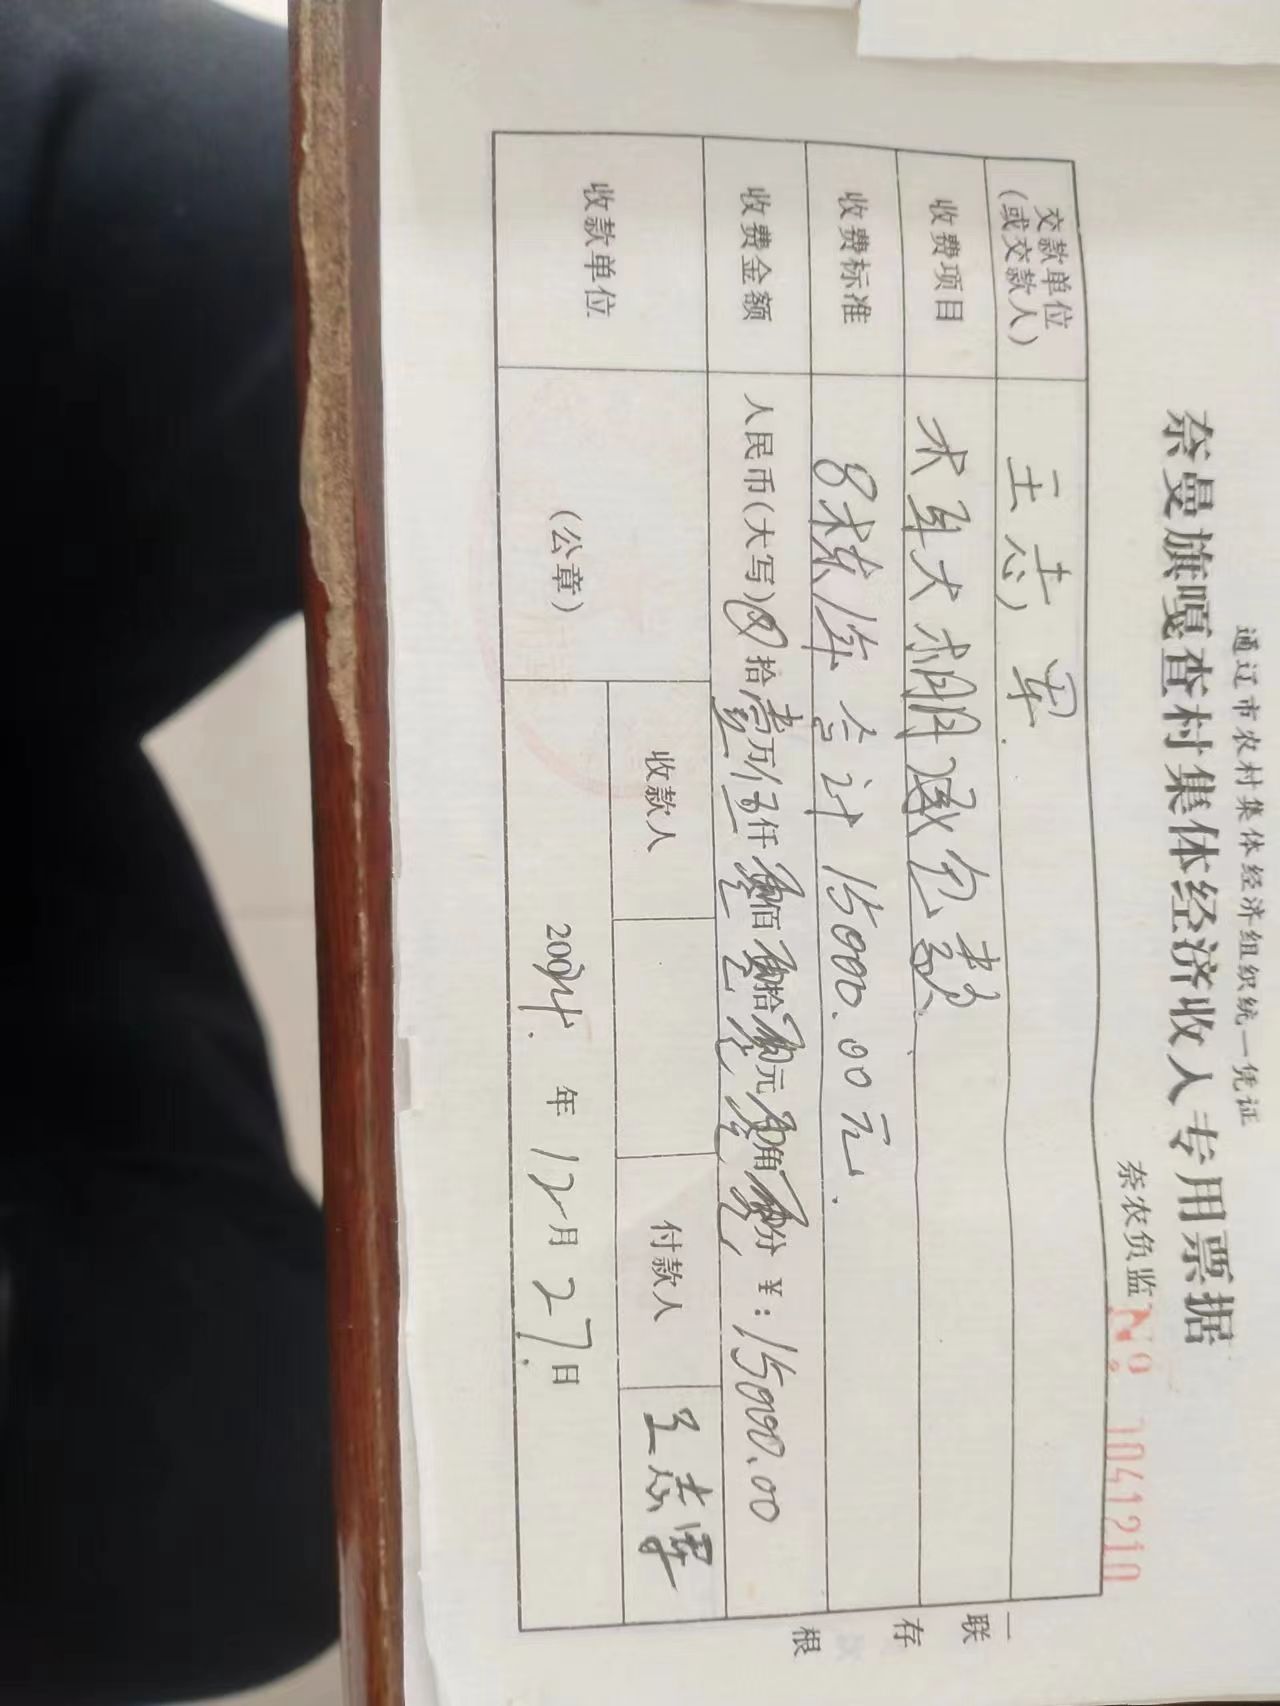 通辽市农村集体经济组织统一凭证
奈曼旗嘎查村集体经济收入专用票据
奈农负监 № 1041210
交款单位(或交款人) 王志军
收费项目 承包款
收费标准 合计15000.00元.
收费金额 人民币(大写) 拾壹万伍仟零佰零拾零元零角零分 ¥:15000.00
收款单位 (公章) 收款人 付款人 王志军
年12月27日
一联存根